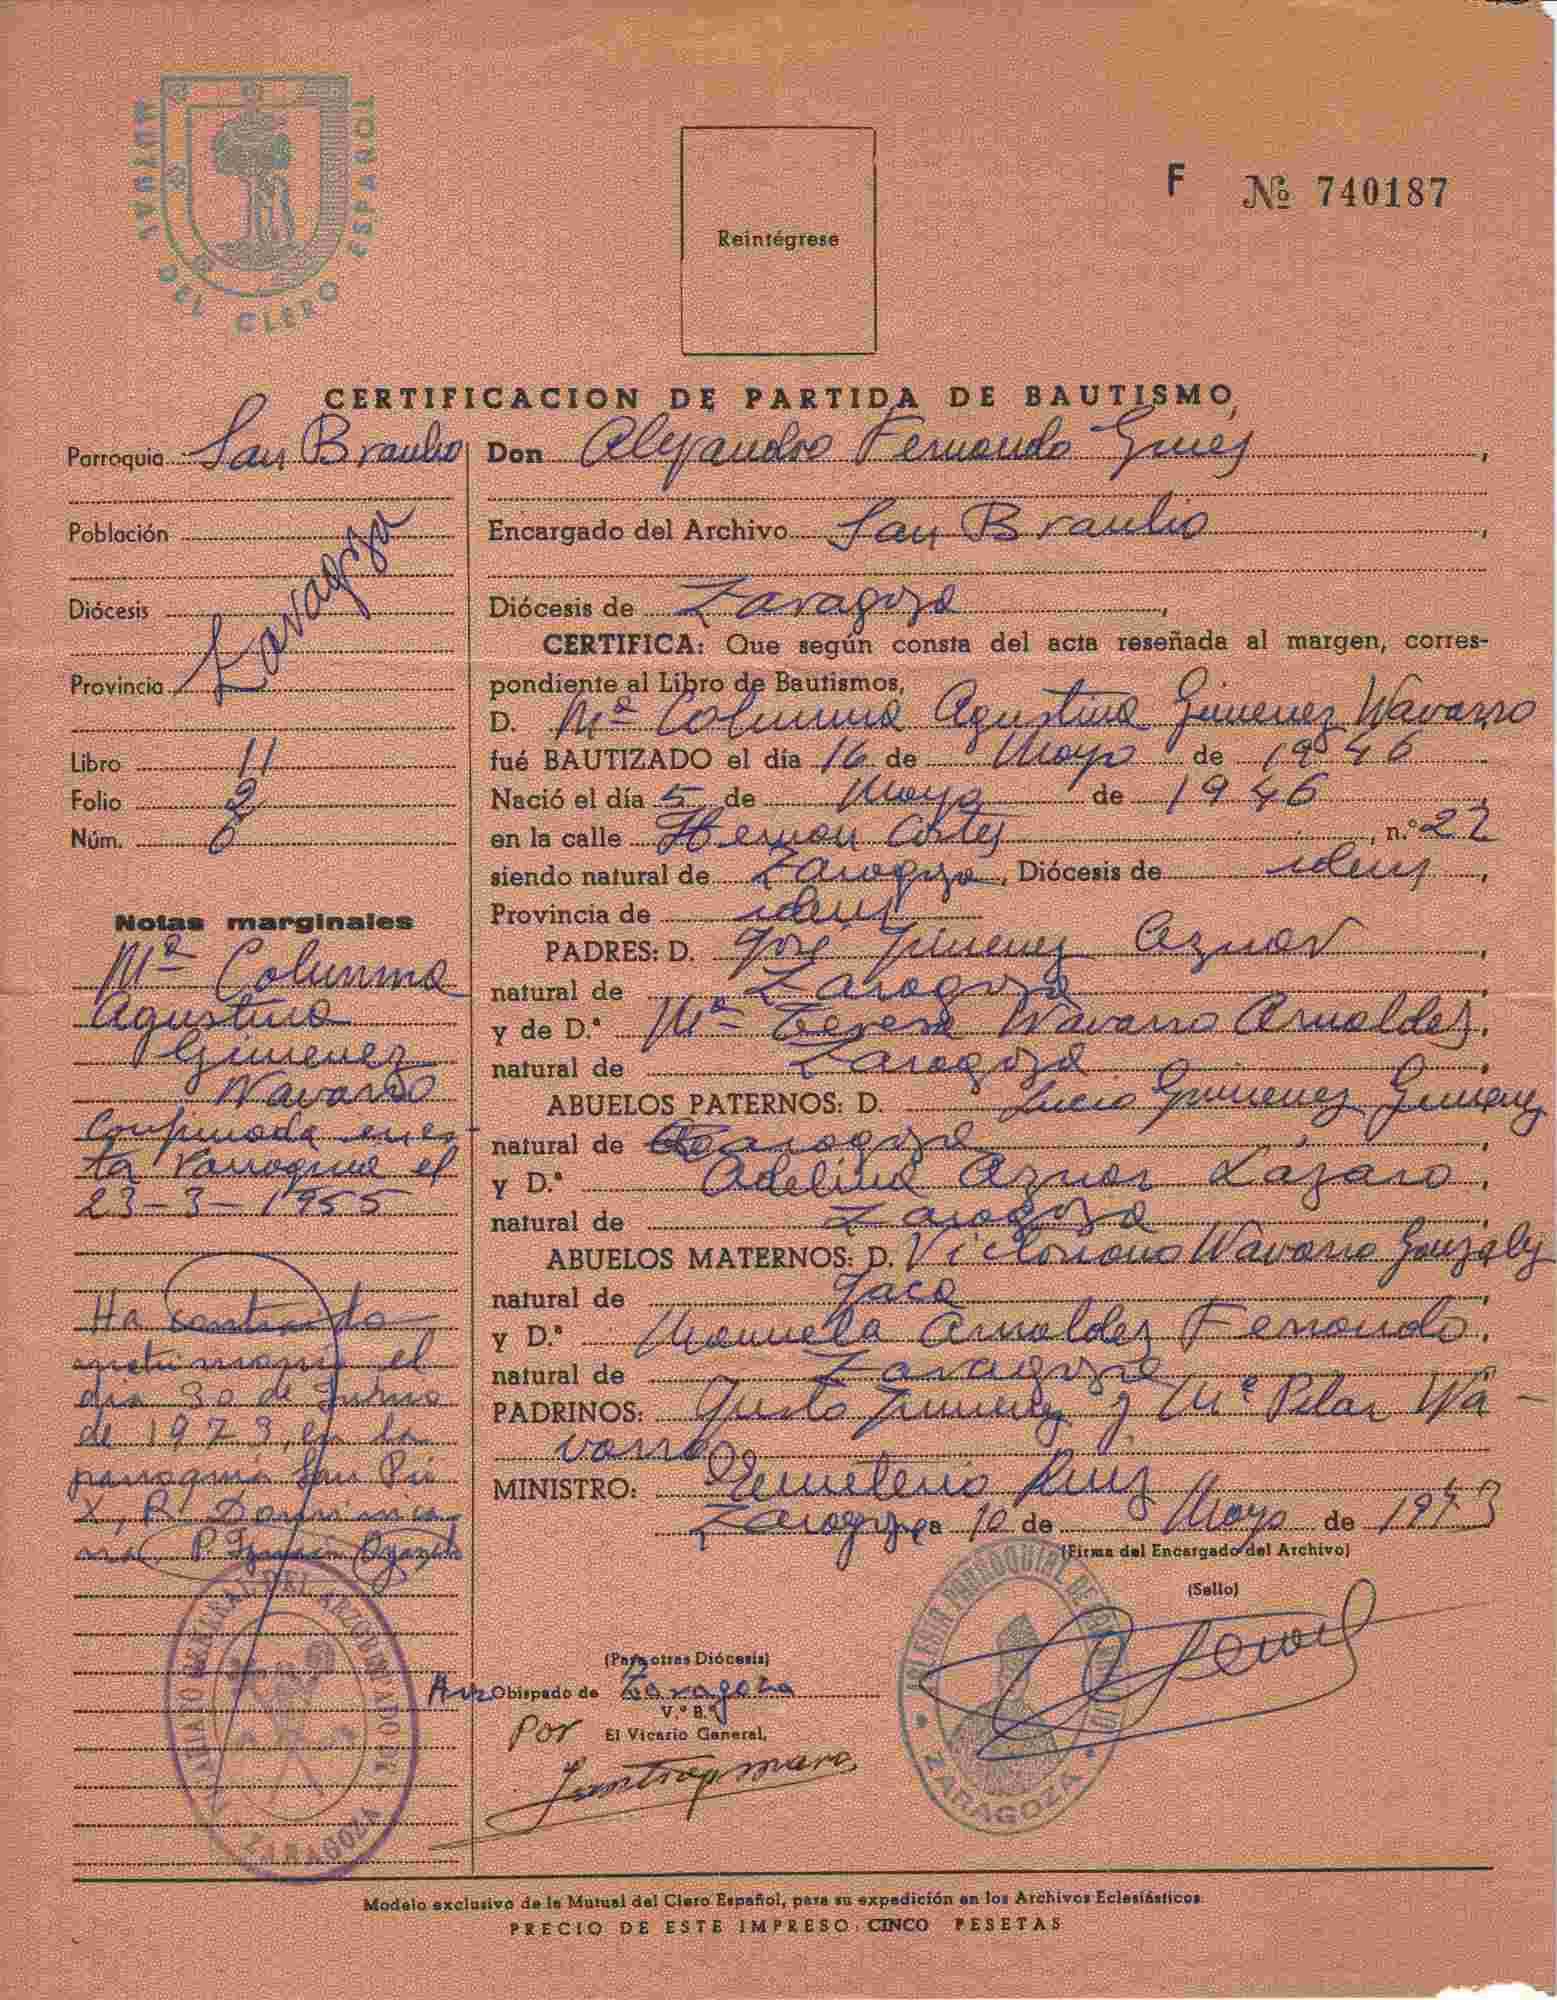 MUTUAL DEL CLERO ESPAÑOL
Reintégrese
F Nº 740187
CERTIFICACION DE PARTIDA DE BAUTISMO
Parroquia San Braulio
Población
Diócesis Zaragoza
Provincia
Libro 11
Folio 2
Núm. 6
Notas marginales
Mª Columna
Agustina
Gimenez
Navarro
Confirmada en es-
ta Parroquia el
23-3-1955
Ha contraido
matrimonio el
dia 30 de Junio
de 1973, en la
parroquia San Pio
X, R. Dominica-
na, P. Ignacio
VICARIATO GENERAL DEL ARZOBISPADO DE ZARAGOZA
Don Alejandro Fernando Gines,
Encargado del Archivo San Braulio,
Diócesis de Zaragoza,
CERTIFICA: Que según consta del acta reseñada al margen, corres-
pondiente al Libro de Bautismos,
D. Mª Columna Agustina Gimenez Navarro
fué BAUTIZADO el día 16 de Mayo de 1946
Nació el día 5 de Mayo de 1946
en la calle Hernan Cortes, n.º 22
siendo natural de Zaragoza, Diócesis de idem,
Provincia de idem
PADRES: D. José Jimenez Aznar
natural de Zaragoza
y de D.ª Mª Teresa Navarro Arnaldez,
natural de Zaragoza
ABUELOS PATERNOS: D. Lucio Gimenez Gimenez
natural de Zaragoza
y D.ª Adelina Aznar Lázaro,
natural de Zaragoza
ABUELOS MATERNOS: D. Victoriano Navarro Gonzalez
natural de Jaca
y D.ª Manuela Arnaldez Ferrando,
natural de Zaragoza
PADRINOS: Justo Jimenez y Mª Pilar Na-
varro
MINISTRO: Emeterio Ruiz
Zaragoza a 10 de Mayo de 1973
(Firma del Encargado del Archivo)
(Sello)
IGLESIA PARROQUIAL DE SAN BRAULIO ZARAGOZA
(Para otras Diócesis)
Arzobispado de Zaragoza
V.º B.º
Por El Vicario General,
Modelo exclusivo de la Mutual del Clero Español, para su expedición en los Archivos Eclesiásticos.
PRECIO DE ESTE IMPRESO: CINCO PESETAS